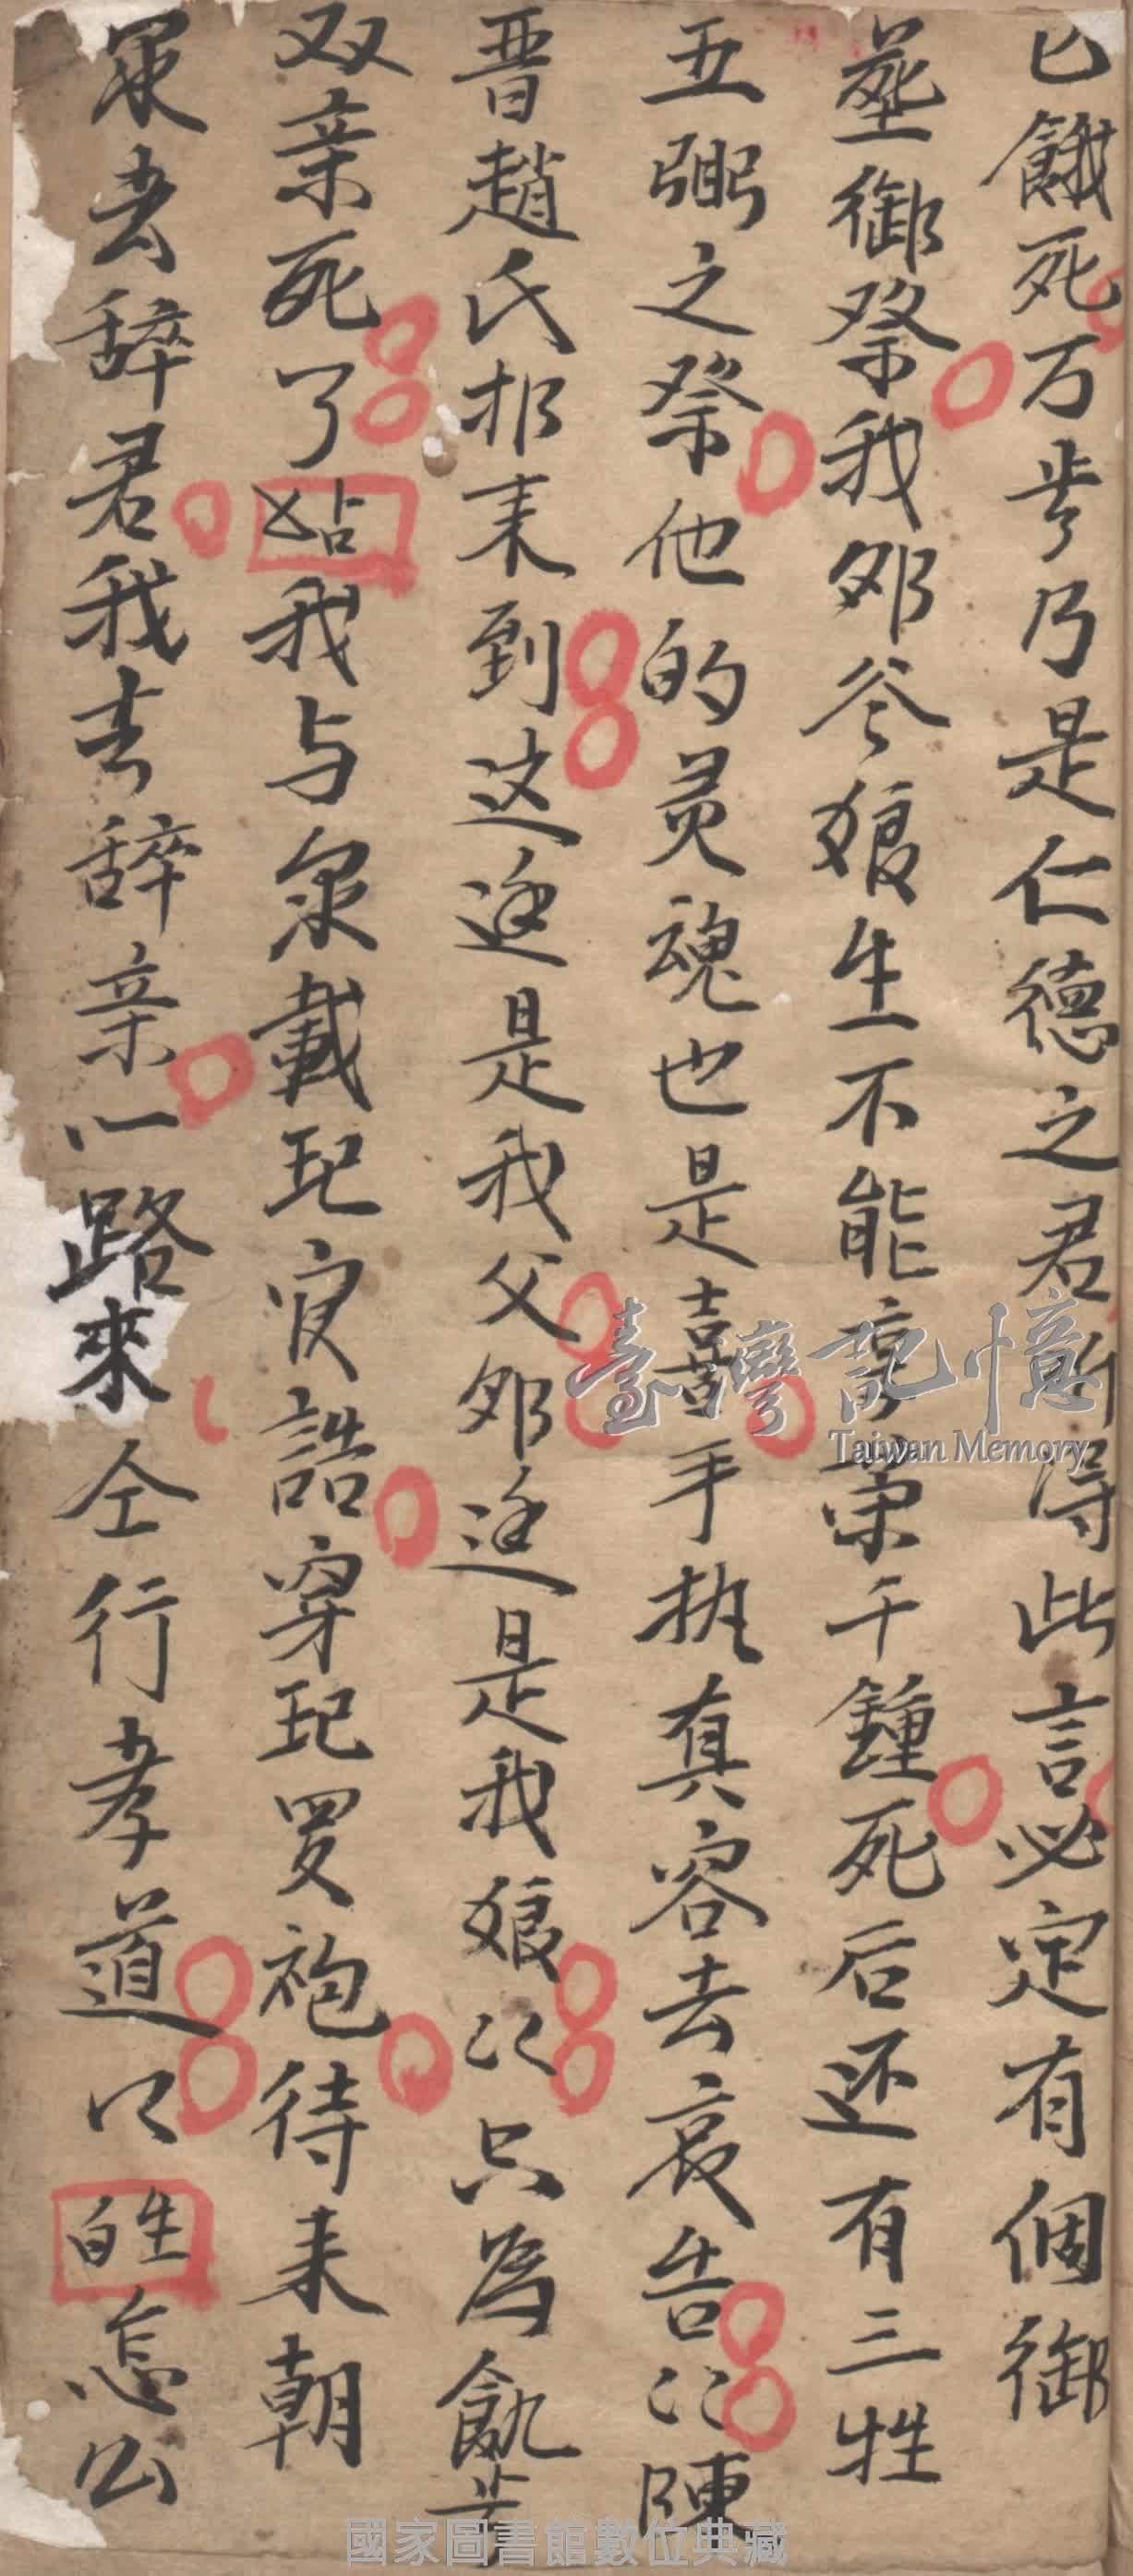 已餓死万歲乃是仁德之君所得此言必定有個御
塟御祭我邓爹娘生不能享荣千鍾死后还有三牲
五弼之祭他的灵魂也是喜手执真容去哀告〻陳
晋趙氏邦来到这这是我父邓这是我娘〻只為飢荒
双亲死了站我与君戴玘官誥穿玘罗袍待来朝
罢去辞君我去辞亲一路來仝行孝道〻生怎公
臺灣記憶
Taiwan Memory
國家圖書館數位典藏